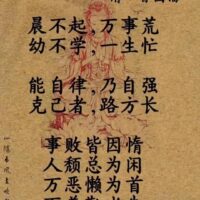 晨不起，万事荒
幼不学，一生忙
能自律，乃自强
克己者，路方长
事败皆因惰
人颓总为闲
万恶懒为首